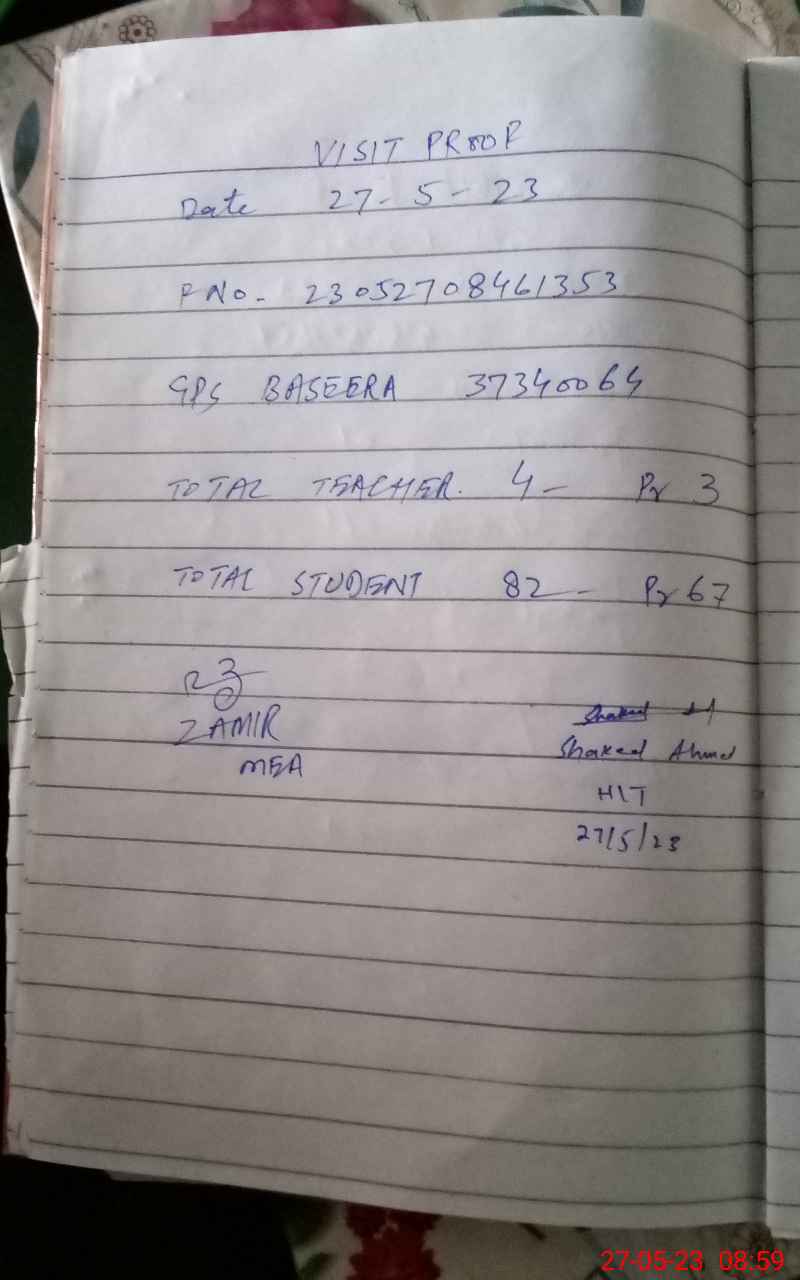 VISIT PROOF
Date 27-5-23
FNo- 23052708461353
GPS BASEERA 37340064
TOTAL TEACHER. 4- Pr 3
TOTAL STUDENT 82- Pr 67
ZAMIR
MEA
Shakeel Ahmed
H/T
27/5/23
27-05-23 08:59